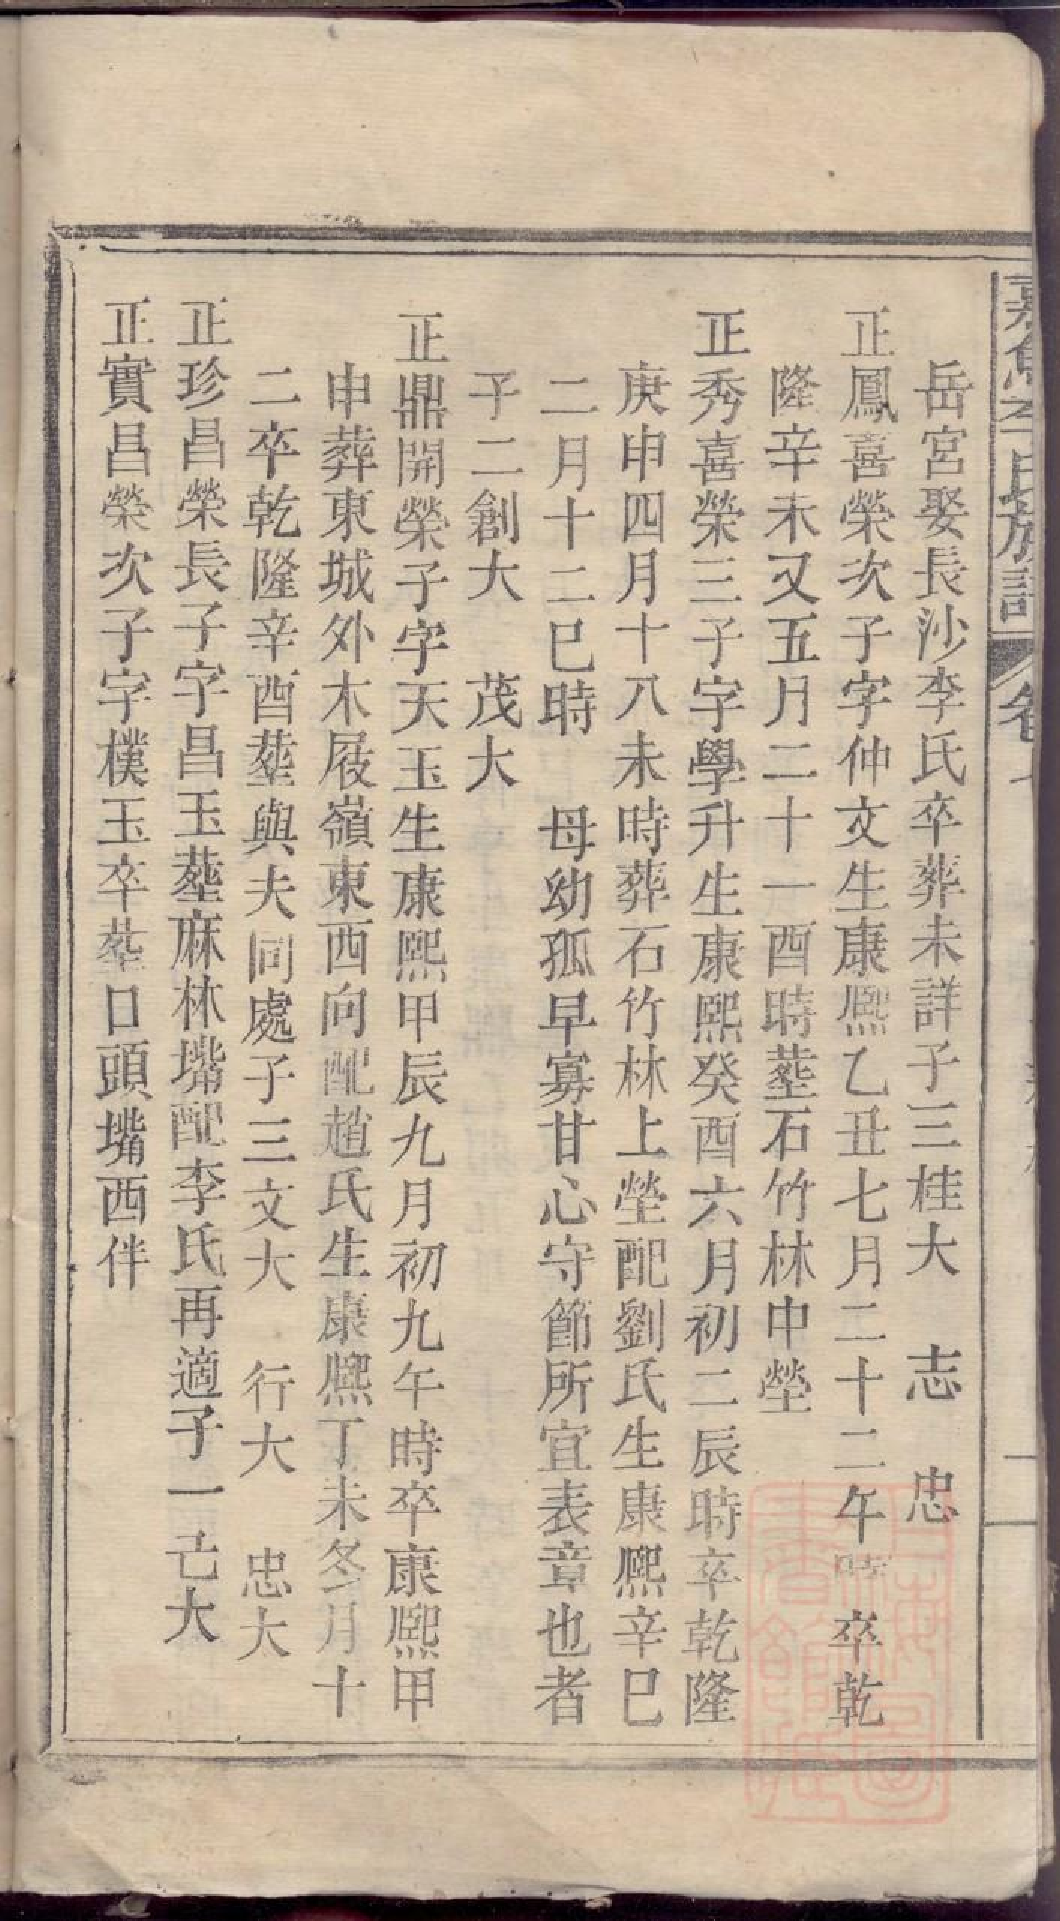 岳宮娶長沙李氏卒葬未詳子三桂大　志　忠
正鳳喜榮次子字仲文生康熙乙丑七月二十二午時卒乾
隆辛未又五月二十一酉時塟石竹林中塋
正秀喜榮三子字學升生康熙癸酉六月初二辰時卒乾隆
庚申四月十八未時葬石竹林上塋配劉氏生康熙辛巳
二月十二巳時　母幼孤早寡甘心守節所宜表章也者
子二創大　茂大
正鼎開榮子字天玉生康熙甲辰九月初九午時卒康熙甲
申葬東城外木屐嶺東西向配趙氏生康熙丁未冬月十
二卒乾隆辛酉塟與夫同處子三文大　行大　忠大
正珍昌榮長子字昌玉塟麻林嘴配李氏再適子一亡大
正實昌榮次子字樸玉卒塟口頭嘴西伴
氏族譜